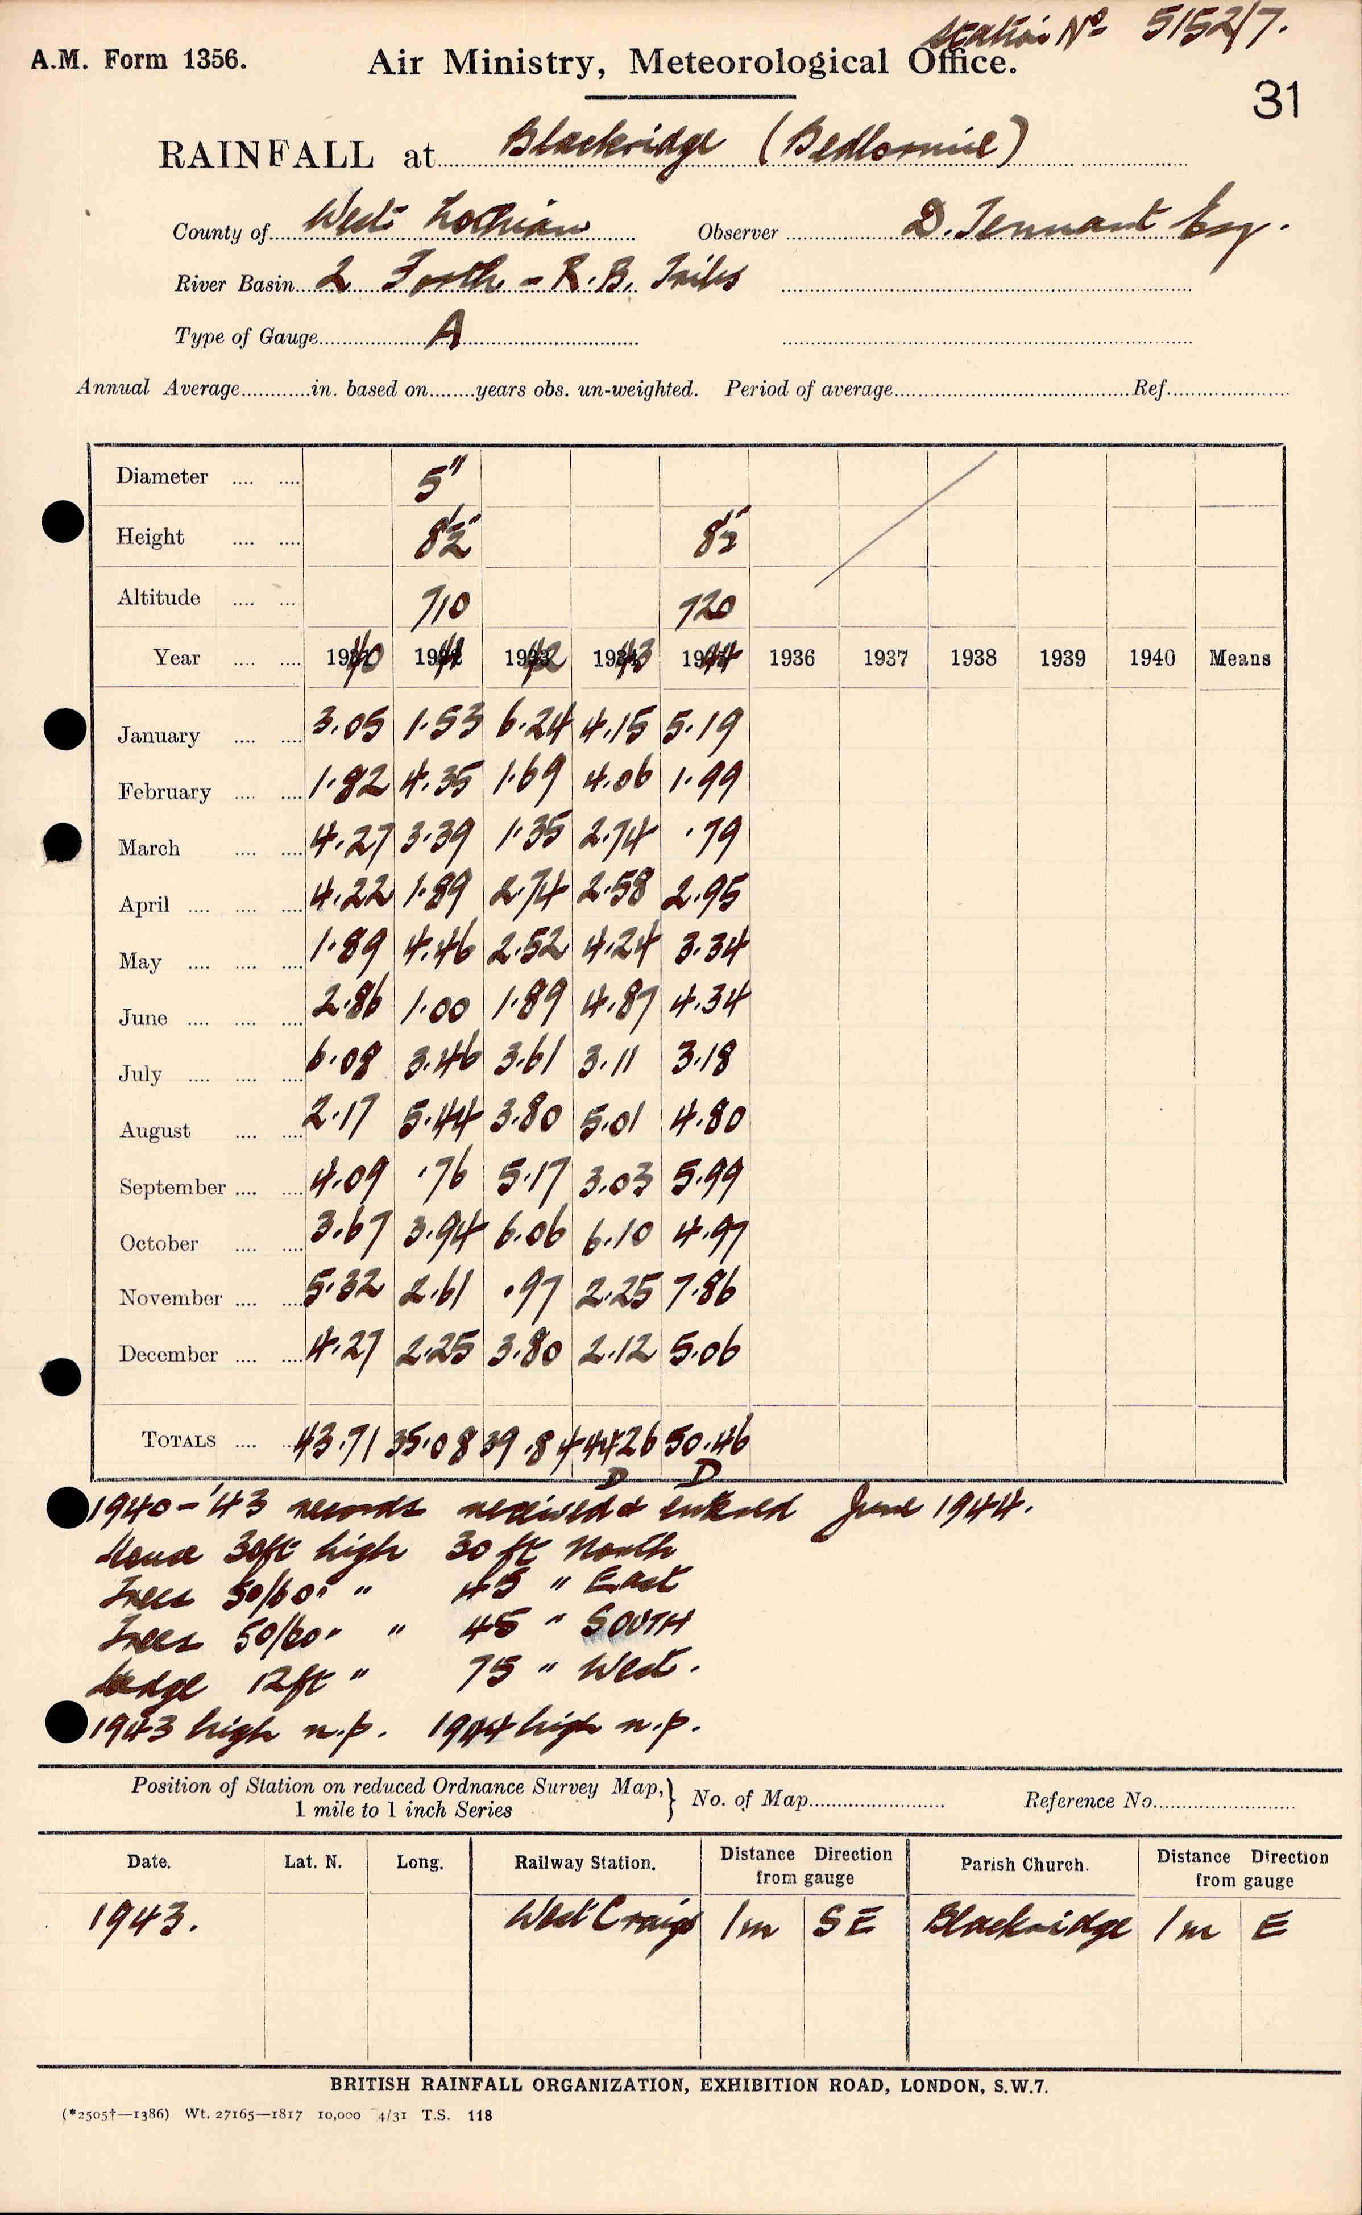 Station No 5152/7.
A.M. Form 1356. Air Ministry, Meteorological Office.
31
RAINFALL at Blackridge (Bedlormie)
County of West Lothian Observer D. Tennant Esq.
River Basin 2 Forth - R.B. Tribs
Type of Gauge A
Annual Average in. based on years obs. un-weighted. Period of average Ref.
Diameter 5"
Height 8½" 8½"
Altitude 710 720
Year 1940 1941 1942 1943 1944 1936 1937 1938 1939 1940 Means
January 3.05 1.53 6.24 4.15 5.19
February 1.82 4.35 1.69 4.06 1.99
March 4.27 3.39 1.35 2.74 .79
April 4.22 1.89 2.74 2.58 2.95
May 1.89 4.46 2.52 4.24 3.34
June 2.86 1.00 1.89 4.87 4.34
July 6.08 3.46 3.61 3.11 3.18
August 2.17 5.44 3.80 5.01 4.80
September 4.09 .76 5.17 3.03 5.99
October 3.67 3.94 6.06 6.10 4.97
November 5.32 2.61 .97 2.25 7.86
December 4.27 2.25 3.80 2.12 5.06
TOTALS 43.71 35.08 39.84 44.26 50.46
D D
1940-'43 records received & entered June 1944.
House 30ft high 30 ft North
Trees 50/60" " 45 " East
Trees 50/60" " 45 " SOUTH
Hedge 12ft " 75 " West.
1943 high n.p. 1944 high n.p.
Position of Station on reduced Ordnance Survey Map, } No. of Map Reference No.
1 mile to 1 inch Series
Date. Lat. N. Long. Railway Station. Distance Direction from gauge Parish Church. Distance Direction from gauge
1943. West Craigs 1m SE Blackridge 1m E
BRITISH RAINFALL ORGANIZATION, EXHIBITION ROAD, LONDON, S.W.7.
(*2505†—1386) Wt. 27165—1817 10,000 4/31 T.S. 118